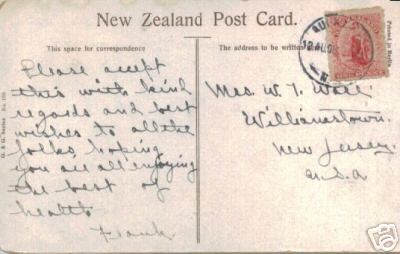 New Zealand Post Card.
This space for correspondence
The address to be written
Please accept
this with kind
regards and best
wishes to all the
folks, hoping
you are all enjoying
the best of
health
Frank.
Mrs. W. T.
Williamstown.
New Jersey.
U.S.A
Printed in Berlin
G. & G. Series No.